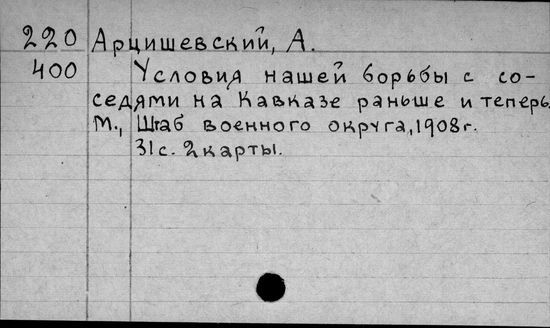 220 Арцишевский, А.
400 Условия нашей борьбы с со-
седями на Кавказе раньше и теперь.
М., Штаб военного округа, 1908г.
31с. 2карты.